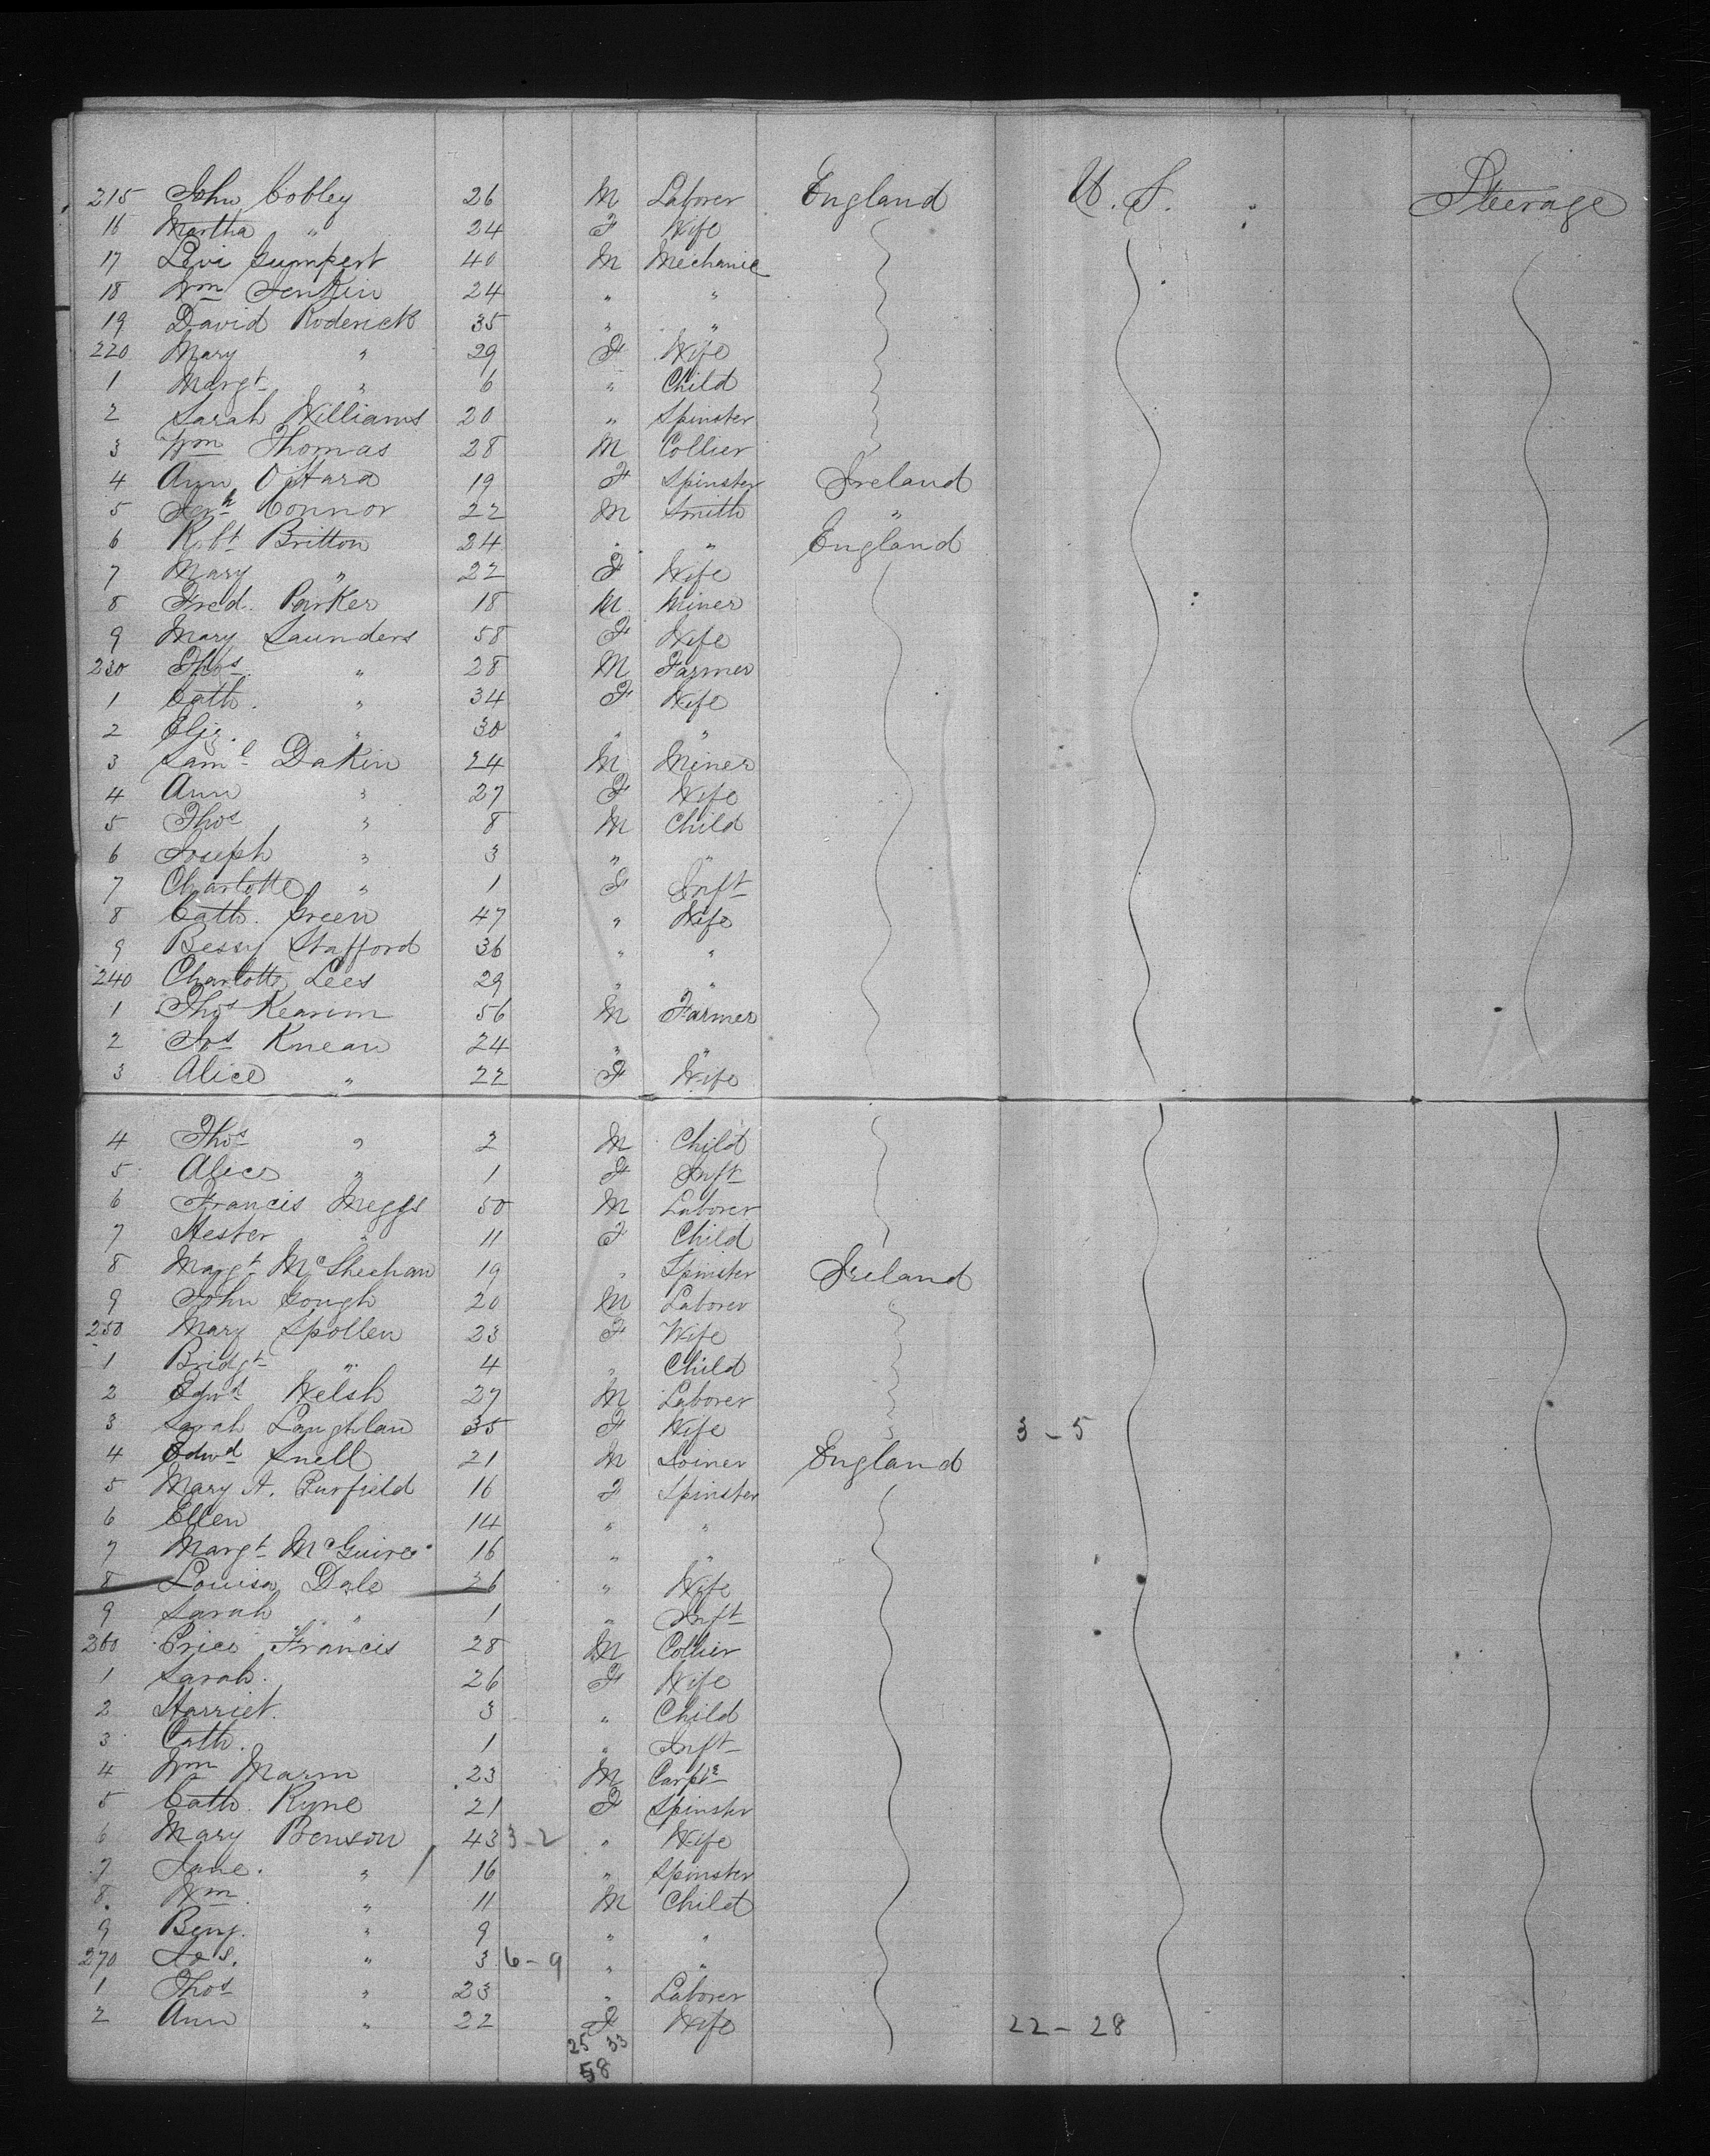 215 John Cobley 26 M Laborer England U.S. Steerage
16 Martha " 24 F Wife
17 Levi Gumpert 40 M Mechanic
18 Wm Jenkin 24 " "
19 David Roderick 35 " "
220 Mary " 29 F Wife
1 Margt " 6 " Child
2 Sarah Williams 20 " Spinster
3 Wm Thomas 28 M Collier
4 Ann O'Hara 19 F Spinster Ireland
5 Connor 22 M Smith "
6 Robt Britton 24 " " England
7 Mary " 22 F Wife
8 Fred. Parker 18 M Miner
9 Mary Saunders 58 F Wife
230 Thos " 28 M Farmer
1 Cath. " 34 F Wife
2 Eliz. " 30 " "
3 Saml Dakin 24 M Miner
4 Ann " 27 F Wife
5 Thos " 8 M Child
6 Joseph " 3 " "
7 Charlotte " 1 F Inft
8 Cath. Green 47 " Wife
9 Bessy Stafford 36 " "
240 Charlotte Lees 29 " "
1 Thos 56 M Farmer
2 Jos Knean 24 " "
3 Alice " 22 F Wife
4 Thos " 2 M Child
5 Alice " 1 F Inft
6 Francis Meggs 50 M Laborer
7 Hester " 11 F Child
8 Margt McSheehan 19 " Spinster Ireland
9 John Gough 20 M Laborer
250 Mary Spollen 23 F Wife
1 Bridgt " 4 " Child
2 Edwd Welsh 27 M Laborer
3 Sarah Laughlan 35 F Wife 3-5
4 Edwd Snell 21 M Joiner England
5 Mary A. Purfield 16 F Spinster
6 Ellen 14 " "
7 Margt McGuire 16 " "
8 Louisa Dale 26 " Wife
9 Sarah " 1 " Inft
260 Price Francis 28 M Collier
1 Sarah. 26 F Wife
2 Harriet. 3 " Child
3 Cath. 1 " Inft
4 Wm Marm 23 M Carptr
5 Cath. Ryne 21 F Spinster
6 Mary Benson 43 3-2 " Wife
7 Jane. " 16 " Spinster
8 Wm. " 11 M Child
9 Benj. " 9 " "
270 Jos. " 3 6-9 " "
1 Thos " 23 " Laborer
2 Ann " 22 F Wife 22-28
25 33
58